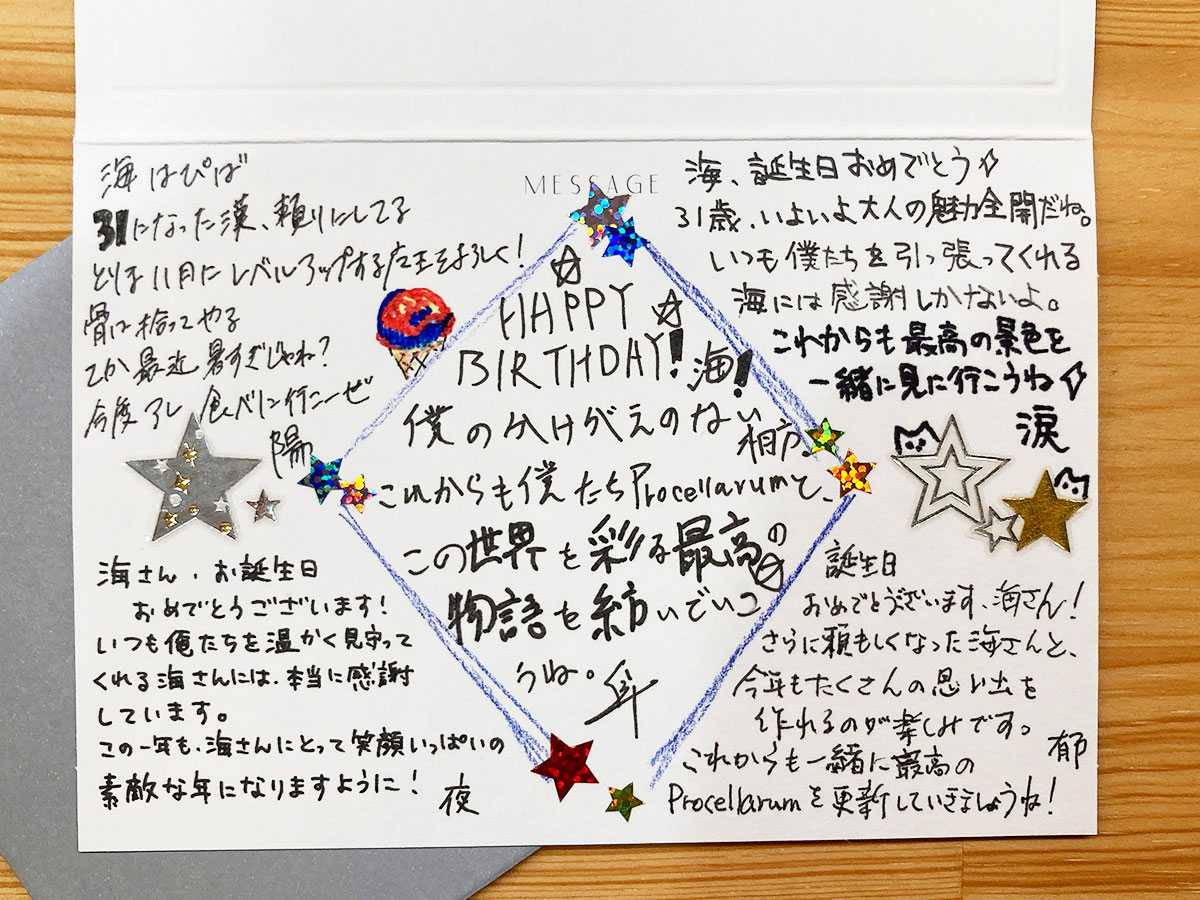 MESSAGE
海はぴば
31になった漢、頼りにしてる
とりま11月にレベルアップする店主をよろしく!
骨は拾ってやる
てか最近暑すぎじゃね?
今度アレ食べに行こーぜ
陽
海、誕生日おめでとう
31歳、いよいよ大人の魅力全開だね。
いつも僕たちを引っ張ってくれる
海には感謝しかないよ。
これからも最高の景色を
一緒に見に行こうね
涙
HAPPY
BIRTHDAY!海!
僕のかけがえのない
相方。
これからも僕たちProcellarumで、
この世界を彩る最高の
物語を紡いでいこ
うね。
海さん、お誕生日
おめでとうございます!
いつも俺たちを温かく見守って
くれる海さんには、本当に感謝
しています。
この一年も、海さんにとって笑顔いっぱいの
素敵な年になりますように!
夜
誕生日
おめでとうございます、海さん!
さらに頼もしくなった海さんと、
今年もたくさんの思い出を
作れるのが楽しみです。
これからも一緒に最高の
Procellarumを更新していきましょうね!
郁